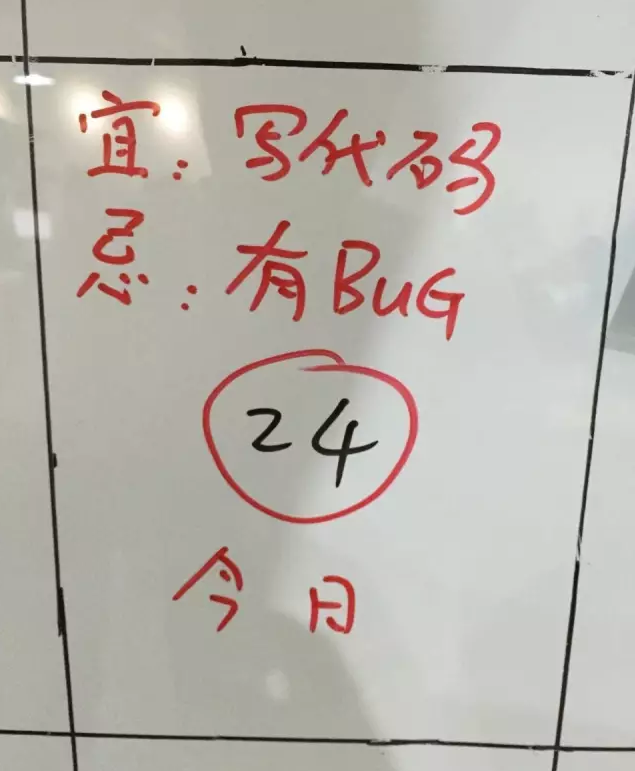 宜：写代码
忌：有BUG
24
今日